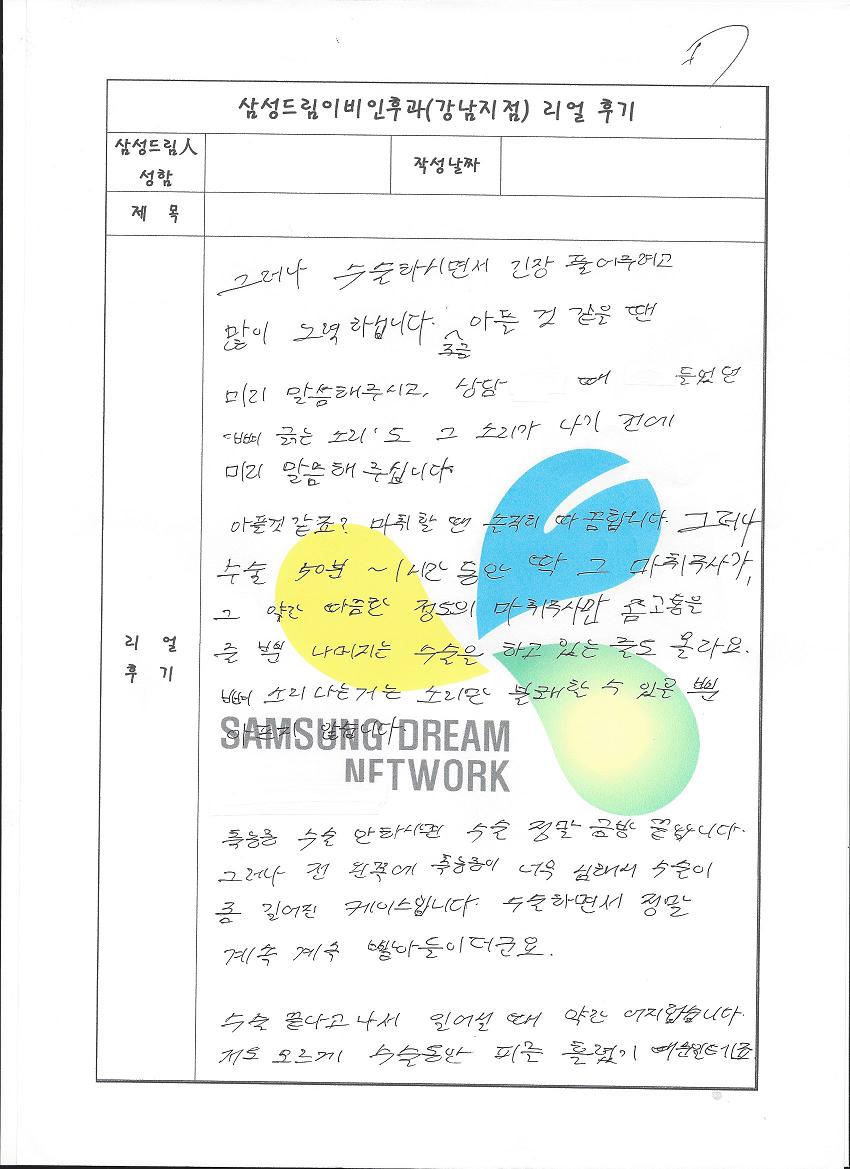 삼성드림이비인후과(강남지점) 리얼 후기
삼성드림人 성함
작성날짜
제 목
리 얼 후 기
그러나 수술하시면서 긴장 풀어주려고
많이 노력하십니다. 조금 아플 것 같을 땐
미리 말씀해주시고, 상담 때 들었던
'뼈 긁는 소리'도 그 소리가 나기 전에
미리 말씀해 주십니다.
아플것 같죠? 마취할 땐 솔직히 따끔합니다. 그러나
수술 50분 ~ 1시간 동안 딱 그 마취주사가,
그 약간 따끔한 정도의 마취주사만 좀 고통을
줄 뿐 나머지는 수술을 하고 있는 줄도 몰라요.
뼈 소리 나는거는 소리만 불쾌할 수 있을 뿐
아프지 않습니다.
SAMSUNG DREAM
NETWORK
축농증 수술 안하시면 수술 정말 금방 끝납니다.
그러나 전 왼쪽에 축농증이 너무 심해서 수술이
좀 길어진 케이스입니다. 수술하면서 정말
계속 계속 빨아들이더군요.
수술 끝나고 나서 일어설 때 약간 어지럽습니다.
저도 모르게 수술동안 피를 흘렸기 때문일테죠